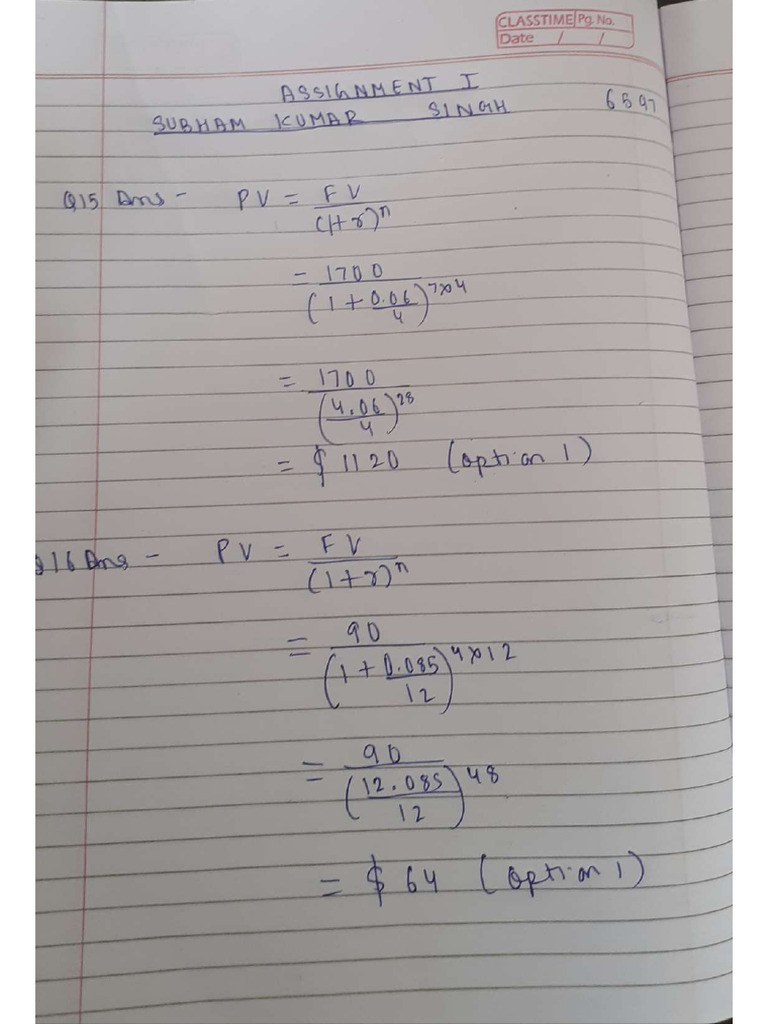 CLASSTIME Pg. No.
Date / /
ASSIGNMENT I
SUBHAM KUMAR SINGH 6597
Q15 Ans - PV = FV / (1+r)^n
= 1700 / (1 + 0.06/4)^7×4
= 1700 / (4.06/4)^28
= $ 1120 (option 1)
16 Ans - PV = FV / (1+r)^n
= 90 / (1 + 0.085/12)^4×12
= 90 / (12.085/12)^48
= $ 64 (option 1)